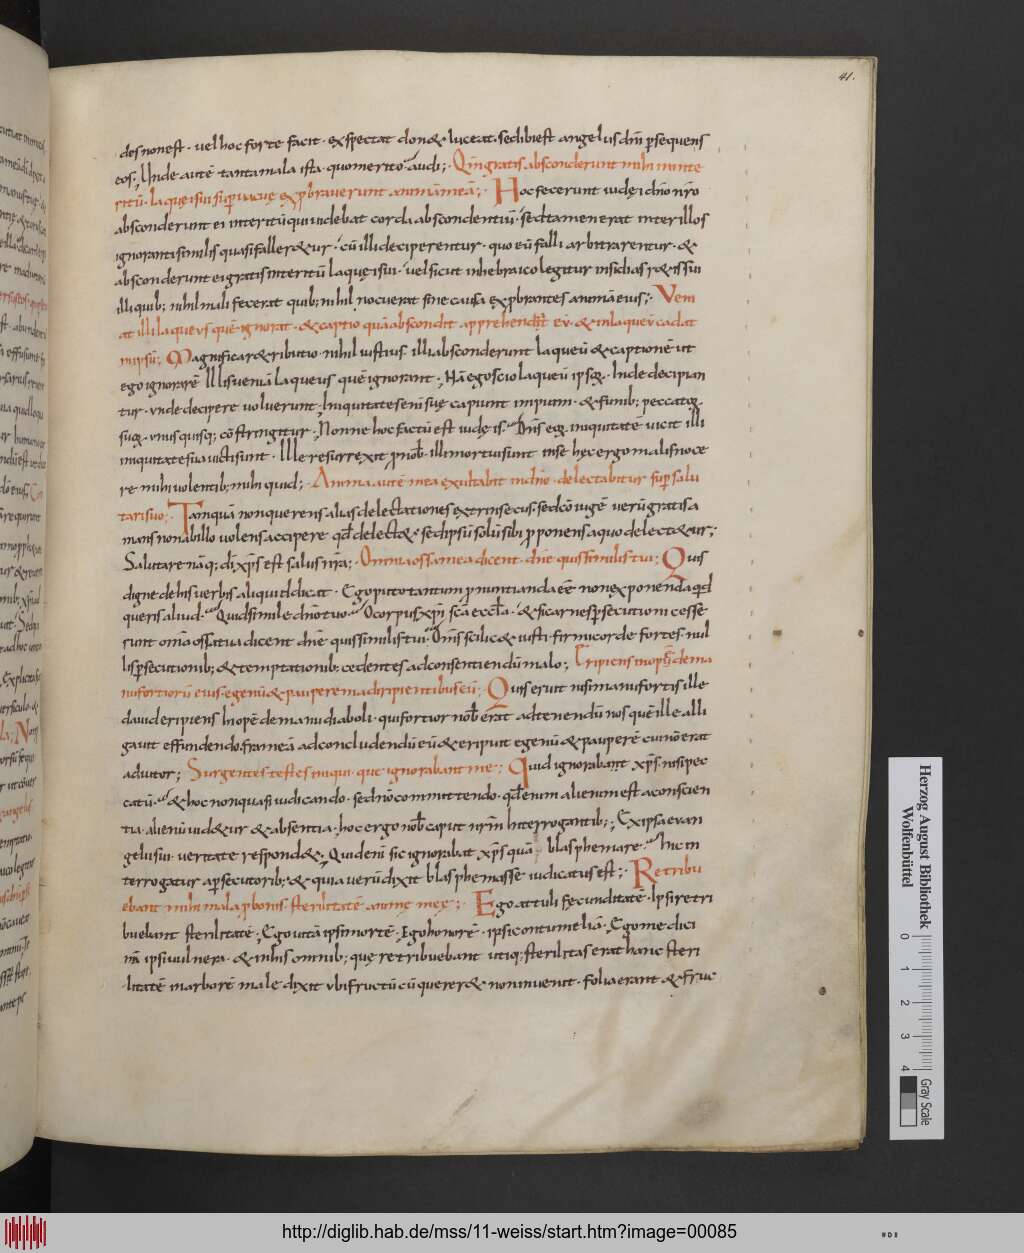 41.
des non est · vel hoc forte facit · exspectat don& · luceat · sed ibi est angelus dn̄i p̄sequens
eos; Unde autē tanta mala ista · quo merito · audi; Qm̄ gratis absconderunt mihi inte
ritū · laquei sui sup̄vacue exprobraverunt animā meā; Hoc fecerunt iudęi dn̄o nr̄o
absconderunt ei interitū qui videbat corda abscondentiū · sed tamen erat inter illos
ignoranti similis quasi faller&ur · cū illi deciperentur · quo eū falli arbitrarentur · &
absconderunt ei gratis interitū laquei sui · vel sicut in hebraico legitur insidias r&is sui
illi quib; nihil mali fecerat quib; nihil nocuerat sine causa exprobrantes animā eius; Veni
at illi laqueus quē ignorat · & captio quā abscondit apprehendat eū · & in laqueū cadat
in ipsū; Magnifica r&ributio nihil iustius · illi absconderunt laqueū & captionē ut
ego ignorarē Illis veniā laqueus quē ignorant · Nā ego scio laqueū ipsoꝝ · Inde decipian
tur · unde decipere voluerunt · Iniquitate seni suę capiunt impium · & funib; peccatoꝝ
suoꝝ · unusquisq; cōstringitur · Nonne hoc factū est iudęis · Dn̄s eoꝝ iniquitatē vicit illi
iniquitate sua victi sunt · Ille resurrexit p̄ nob̄ · illi mortui sunt in se · hęc ergo malis noce
re mihi volentib; mihi quid; Anima autē mea exultabit in dn̄o · delectabitur sup̄ salu
tari suo; Tamquā non querens alias delectationes extrinsecus · sed cōiugē verū gratis a
mans non ab illo volens accipere qd̄ delect&; sed ipsū solū sibi proponens a quo delect&ur;
Salutare nāq; di xp̄s est salus nr̄a; Omnia ossa mea dicent · dn̄e quis similis tui; Quis
digne de his verbis aliquid dicat · Ego puto tantum p̄nuntianda eē non exponenda qd̄
queris aliud · Quid simile dn̄o tuo · O corpus xp̄i sc̄a eccl̄a · & si carnes p̄secutioni cesse
runt om̄a ossa tua dicent dn̄e quis similis tui · Om̄s scilic& iusti firmi corde fortes · nul
lis p̄secutionib; & temptationib; cedentes ad consentiendū malo; Eripiens inopē de ma
nu fortiorū eius egenū & pauperem a diripientibus eū; Quis erunt nisi manu fortis ille
david eripiens · Inopē de manu diaboli · qui fortior nob̄ erat ad tenendū nos quē ille alli
gavit effundendo frameā ad concludendū eū & eripuit egenū & pauperē cui nō erat
adiutor; Surgentes testes iniqui · que ignorabam inter; Quid ignorabant xp̄s · nisi pec
catū · & hoc non quasi iudicando · sed nō committendo · qd̄ enim alienum est a conscien
tia · alienū vid&ur & absentia · hoc ergo nob̄ caput nr̄m Interrogantib; Ex ipsa evan
gelii sui veritate respond&; Quidenī sic ignorabat xp̄s quā blasphemare · Hinc in
terrogatur a p̄secutorib; & quia verū dixit blasphemasse iudicatus est; Retribu
ebant mihi mala p̄ bonis · sterilitatē animę męę; Ego attuli fecunditatē · Ipsi retri
buebant sterilitatē · Ego vitā ipsi mortē · Ego honorē · ipsi contumeliā · Ego medici
nā ipsi vulnera · & in his omnib; quę retribuebant utiq; sterilitas erat hanc steri
litatē in arborē male dixit ubi fructū cū querer& non invenit · folia erant & fruc
Herzog August Bibliothek
Wolfenbüttel
0 1 2 3 4
Gray Scale
http://diglib.hab.de/mss/11-weiss/start.htm?image=00085